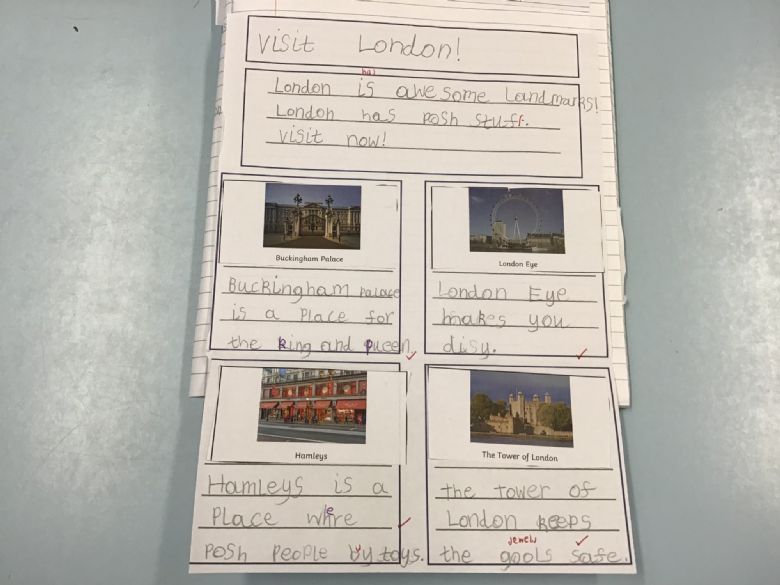 visit London!
has
London is awesome Landmarks!
London has posh stuff.
visit now!
Buckingham Palace
Buckingham palace
is a place for
the king and queen
London Eye
London Eye
makes you
disy.
Hamleys
Hamleys is a
place whre
e
posh people by toys.
The Tower of London
the tower of
London keeps
jewels
the gools safe.